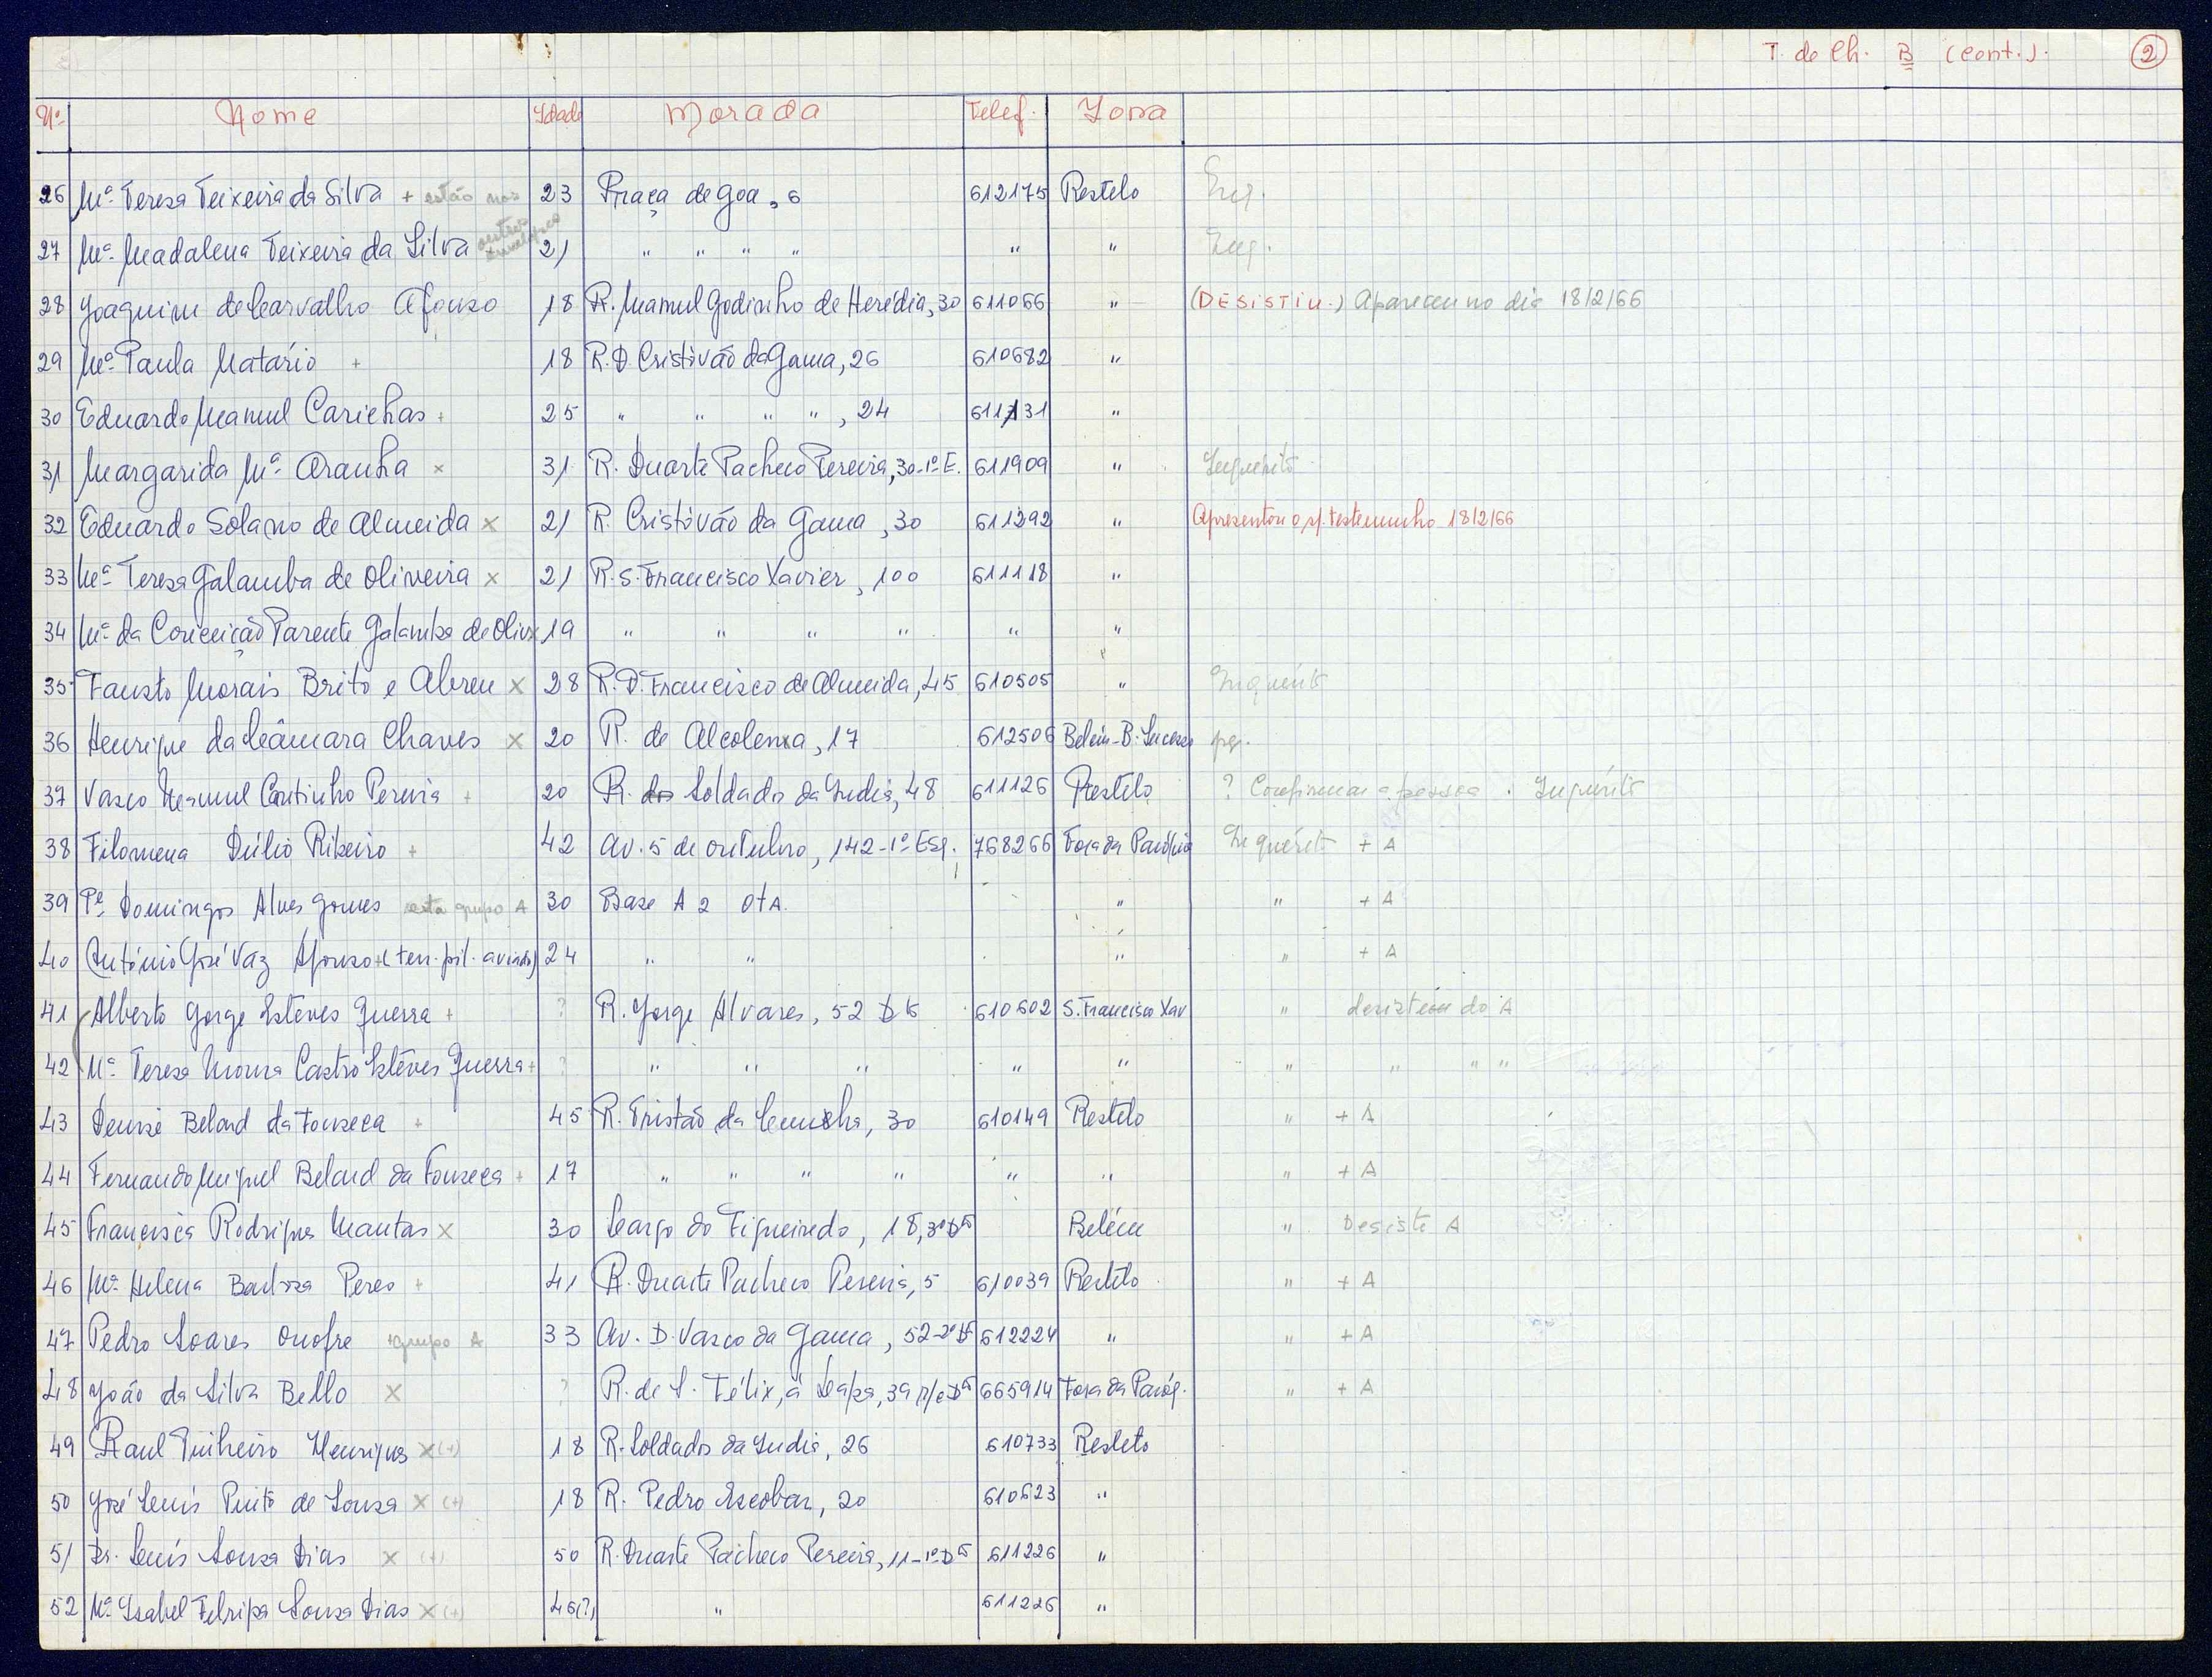 T. de Ch. B (cont.). 2
Nº Nome Idade Morada Telef. Zona
26 Mª Teresa Teixeira da Silva + estão nos 23 Praça de Goa, 6 612175 Restelo
outros
27 Mª Madalena Teixeira da Silva 21 " " " " " "
28 Joaquim de Carvalho Afonso 18 R. Manuel Godinho de Herédia, 30 611066 " (DESISTIU.) Apareceu no dia 18/2/66
29 Mª Paula Natário + 18 R. D. Cristóvão da Gama, 26 610682 "
30 Eduardo Manuel + 25 " " " " , 24 "
31 Margarida Mª Aranha x 31 R. Duarte Pacheco Pereira, 30-1º E. 611909 " Inquérito
32 Eduardo Solano de Almeida x 21 R. Cristóvão da Gama, 30 611292 " Apresentou o s/. testemunho 18/2/66
33 Mª Teresa Galamba de Oliveira x 21 R. S. Francisco Xavier, 100 611118 "
34 Mª da Conceição Parente Galamba de Oliv. x 19 " " " " " "
35 Fausto Morais Brito e Abreu x 28 R. D. Francisco de Almeida, 45 610505 " Inquérito
36 Henrique da Câmara Chaves x 20 R. de Alcolena, 17 612506 Belém-B. Sucesso
37 Vasco Manuel Coutinho Pereira + 20 R. dos Soldados da Índia, 48 611126 Restelo ? Confirmar a pessoa . Inquérito
38 Filomena Dúlio Ribeiro + 42 Av. 5 de outubro, 142-1º Esq. 768266 Fora da Paróquia Inquérito + A
39 Pe. Domingos Alves Gomes está grupo A 30 Base A 2 OTA. " " + A
40 António José Vaz Afonso + (ten. pil. aviador) 24 " " " " + A
41 Alberto Jorge Esteves Guerra + ? R. Jorge Alvares, 52 Dtº 610602 S. Francisco Xav " desistiu do A
42 Mª Teresa Moura Castro Esteves Guerra + ? " " " " " " " " "
43 Denise Belard da Fonseca + 45 R. Tristão da Cunha, 30 610149 Restelo " + A
44 Fernando Miguel Belard da Fonseca + 17 " " " " " " " + A
45 Francisca Rodrigues Mantas x 30 Largo do Figueiredo, 18, 3º Dtº Belém " Desiste A
46 Mª Helena Barbosa Peres + 41 R. Duarte Pacheco Pereira, 5 610039 Restelo " + A
47 Pedro Soares Onofre + grupo A 33 Av. D. Vasco da Gama, 52-2º Dtº 612224 " " + A
48 João da Silva Bello x ? R. de S. Félix, à Lapa, 39 r/c Dtº 665914 Fora da Paróq. " + A
49 Raul Pinheiro Henriques x (+) 18 R. Soldados da Índia, 26 610733 Restelo
50 José Luís Pinto de Sousa x (+) 18 R. Pedro Escobar, 20 610623 "
51 Dr. Luís Sousa Dias x (+) 50 R. Duarte Pacheco Pereira, 11-1º Dtº 611226 "
52 Mª Isabel Sousa Dias x (+) 46(?) " 611226 "